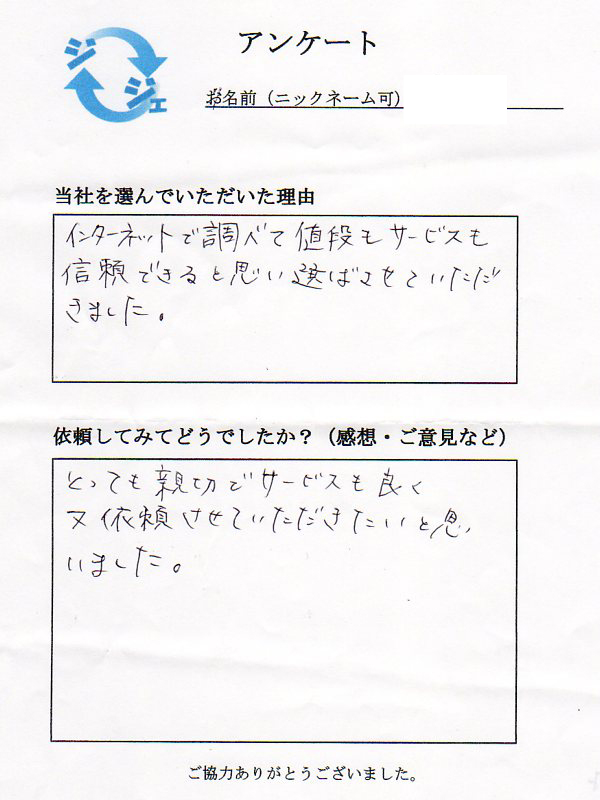 ジジェ
アンケート
お名前（ニックネーム可）
当社を選んでいただいた理由
インターネットで調べて値段もサービスも
信頼できると思い選ばさせていただだ
きました。
依頼してみてどうでしたか？（感想・ご意見など）
とっても親切でサービスも良く
又依頼させていただきたいと思い
いました。
ご協力ありがとうございました。